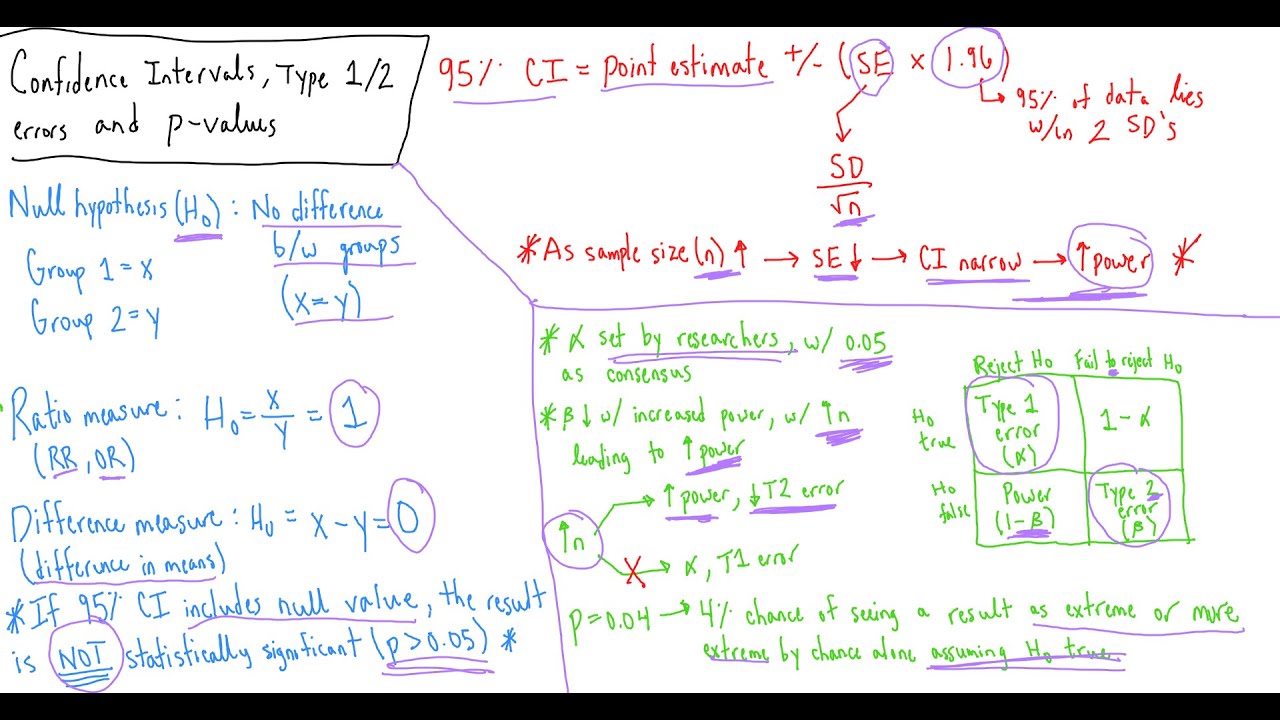 Confidence Intervals, Type 1/2
errors and p-values
95% CI = point estimate +/- (SE × 1.96)
95% of data lies
w/in 2 SD's
SD
√n
* As sample size (n) ↑ → SE ↓ → CI narrow → ↑ power *
Null hypothesis (H₀) : No difference
b/w groups
(x = y)
Group 1 = x
Group 2 = y
Ratio measure : H₀ = x/y = 1
(RR, OR)
Difference measure : H₀ = x - y = 0
(difference in means)
* If 95% CI includes null value, the result
is NOT statistically significant (p > 0.05) *
* α set by researchers, w/ 0.05
as consensus
* β ↓ w/ increased power, w/ ↑ n
leading to ↑ power
↑ n
→ ↑ power, ↓ T2 error
X → α, T1 error
Reject H₀ Fail to reject H₀
H₀
true
Type 1
error
(α)
1 - α
H₀
false
Power
(1 - β)
Type 2
error
(β)
p = 0.04 → 4% chance of seeing a result as extreme or more
extreme by chance alone assuming H₀ true